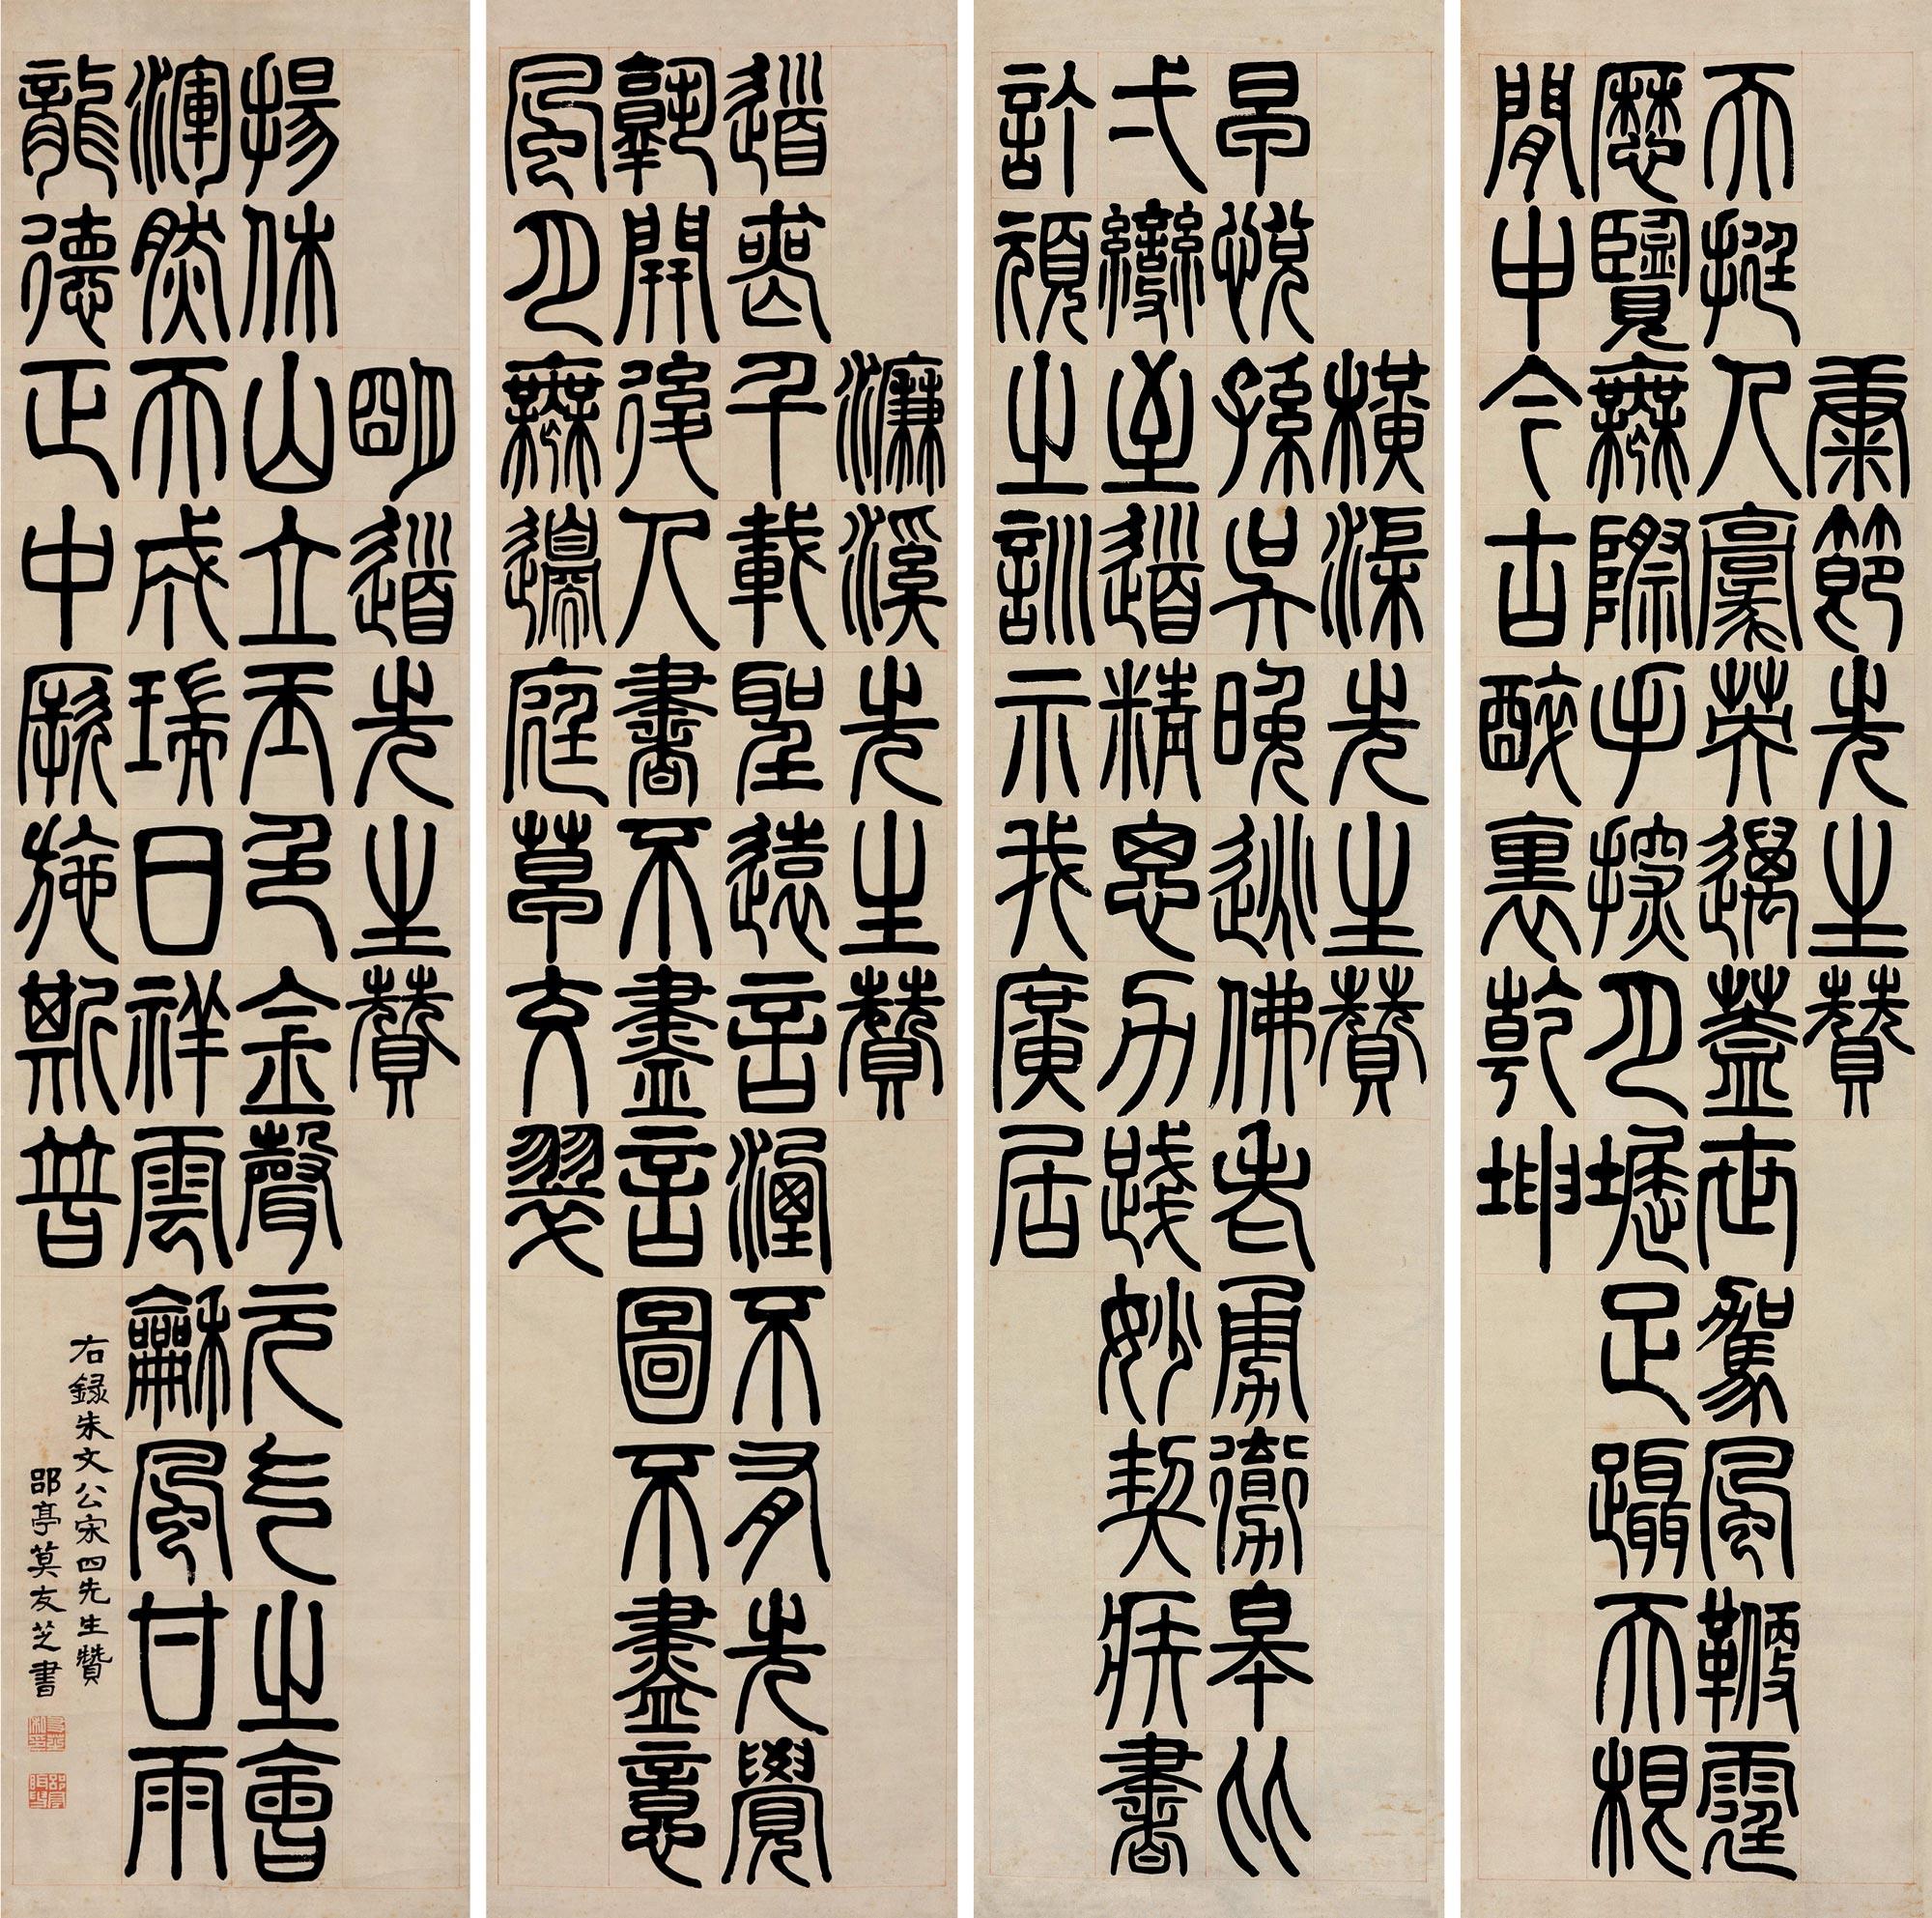 康節先生贊
天挺人豪英邁蓋世駕風鞭霆
歷覽無際手探月窟足躡天根
閒中今古醉裏乾坤
橫渠先生贊
早悅孫吳晚逃佛老勇勶皋比
弌變至道精思力踐妙契疾書
訂頑之訓示我廣居
濂溪先生贊
道喪千載聖遠言湮不有先覺
孰開後人書不盡言圖不盡意
風月無邊庭草交翠
明道先生贊
揚休山立玉色金聲元气之會
渾然天成瑞日祥雲龢風甘雨
龍德正中厥施斯普
右錄朱文公宋四先生贊
郘亭莫友芝書
友芝私印
郘亭眲叟